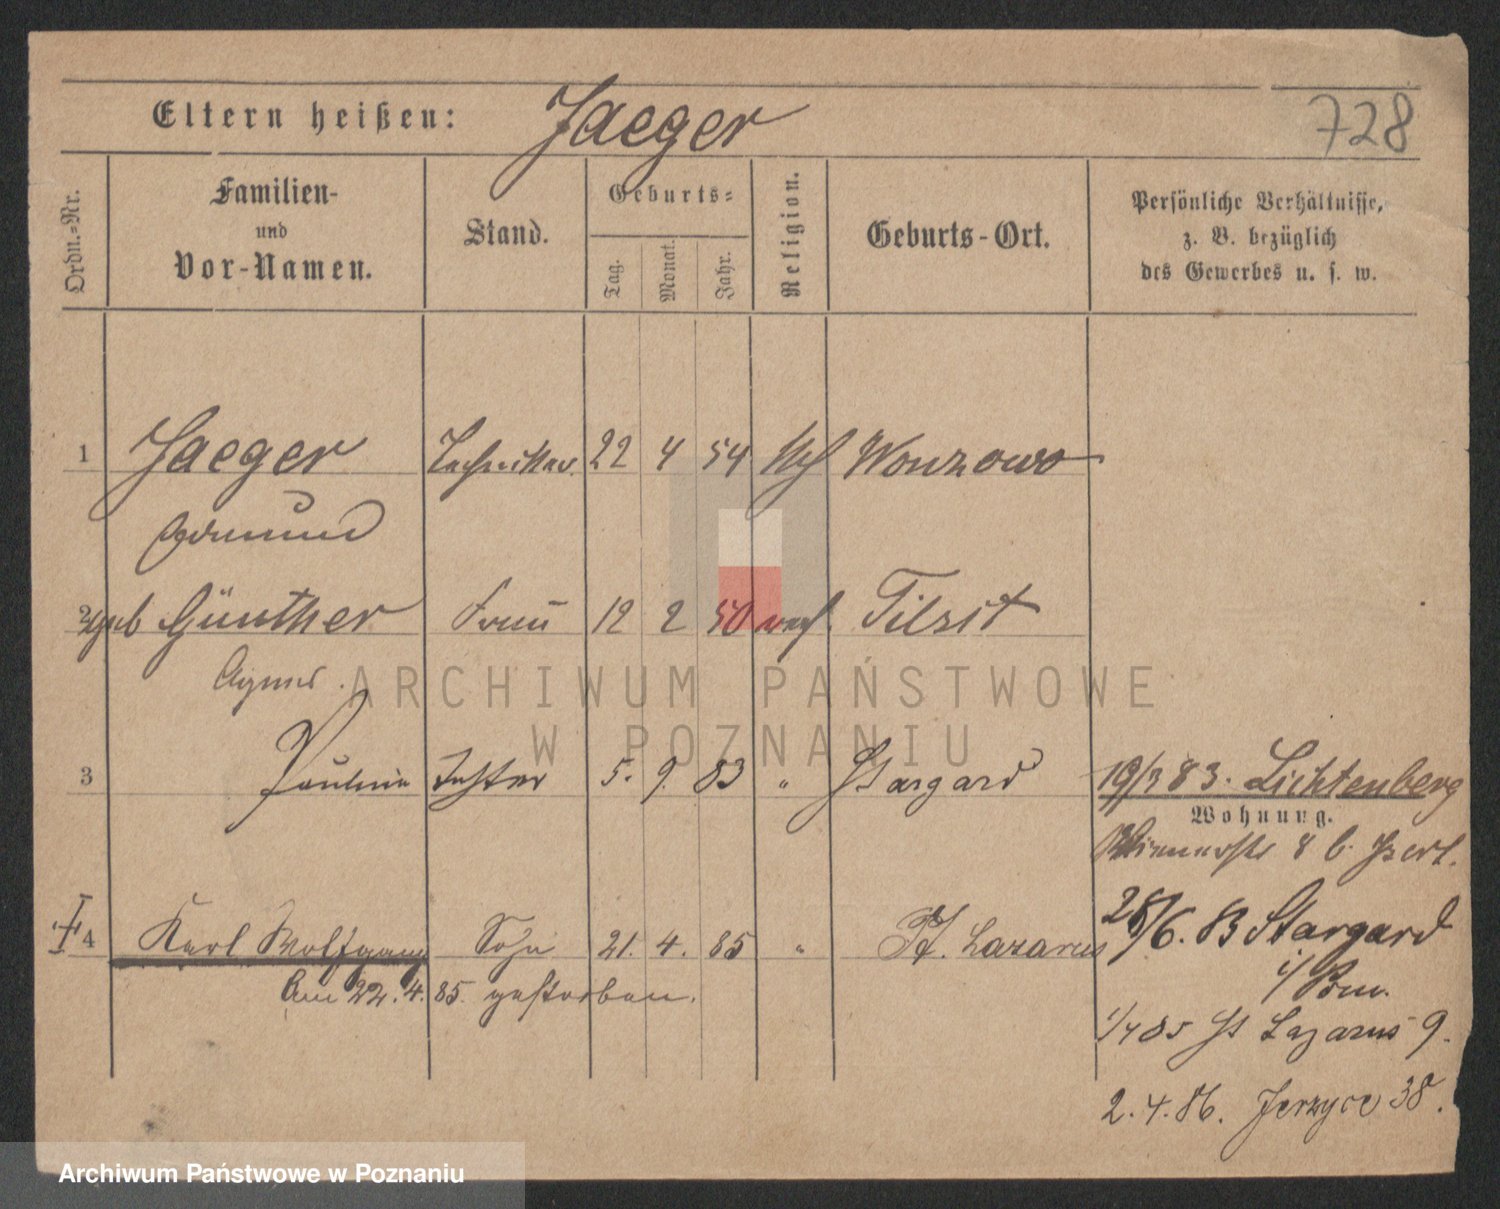 Eltern heißen: Jaeger
728
Ordn.-Nr.
Familien-
und
Vor-Namen.
Stand.
Geburts-
Tag.
Monat.
Jahr.
Religion.
Geburts-Ort.
Persönliche Verhältnisse,
z. B. bezüglich
des Gewerbes u. s. w.
1 Jaeger Techniker 22 4 54 Wonzowo
Edmund
2 geb Günther Frau 12 2 50 ref. Tilsit
Agnes.
ARCHIWUM PAŃSTWOWE
W POZNANIU
3 Pauline Tochter 5. 9. 83 " Stargard
19/3 83. Lichtenberg
Wohnung.
8 b.
4 Karl Wolfgang Sohn 21. 4. 85 " St. Lazarus
28/6. 83 Stargard
i/ Pom.
Am 22. 4. 85. gestorben.
1/4 85 St Lazarus 9.
2. 4. 86. Jerzyce 38.
Archiwum Państwowe w Poznaniu